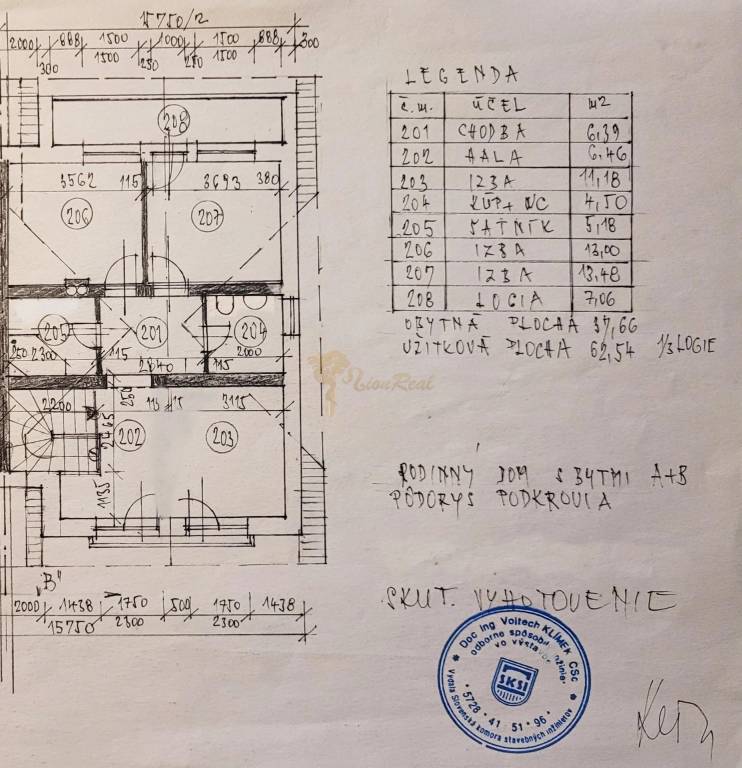 15750/2
2000 688 1500 1000 1500 688 300
300 1500 250 250 1500
208
3562 115 3693 380
206 207
205 201 204
250 2300 115 2840 115 2000
2200 250 115 3115
2465
202 203
1135
„B"
2000 1438 1750 500 1750 1438
15750 2300 2300
LEGENDA
č.m. ÚČEL m2
201 CHODBA 6,39
202 HALA 6,46
203 IZBA 11,18
204 KÚP+WC 4,50
205 ŠATNÍK 5,18
206 IZBA 13,00
207 IZBA 13,48
208 LOGIA 7,06
OBYTNÁ PLOCHA 37,66
UŽITKOVÁ PLOCHA 62,54 1/3 LOGIE
LionReal
RODINNÝ DOM S BYTMI A+B
PÔDORYS PODKROVIA
SKUT. VYHOTOVENIE
Doc Ing Vojtech KLIMEK CSc
odborne spôsobilý
vo výstavbe
SKSI
5728 41 51 96
Vydala Slovenská komora stavebných inžinierov